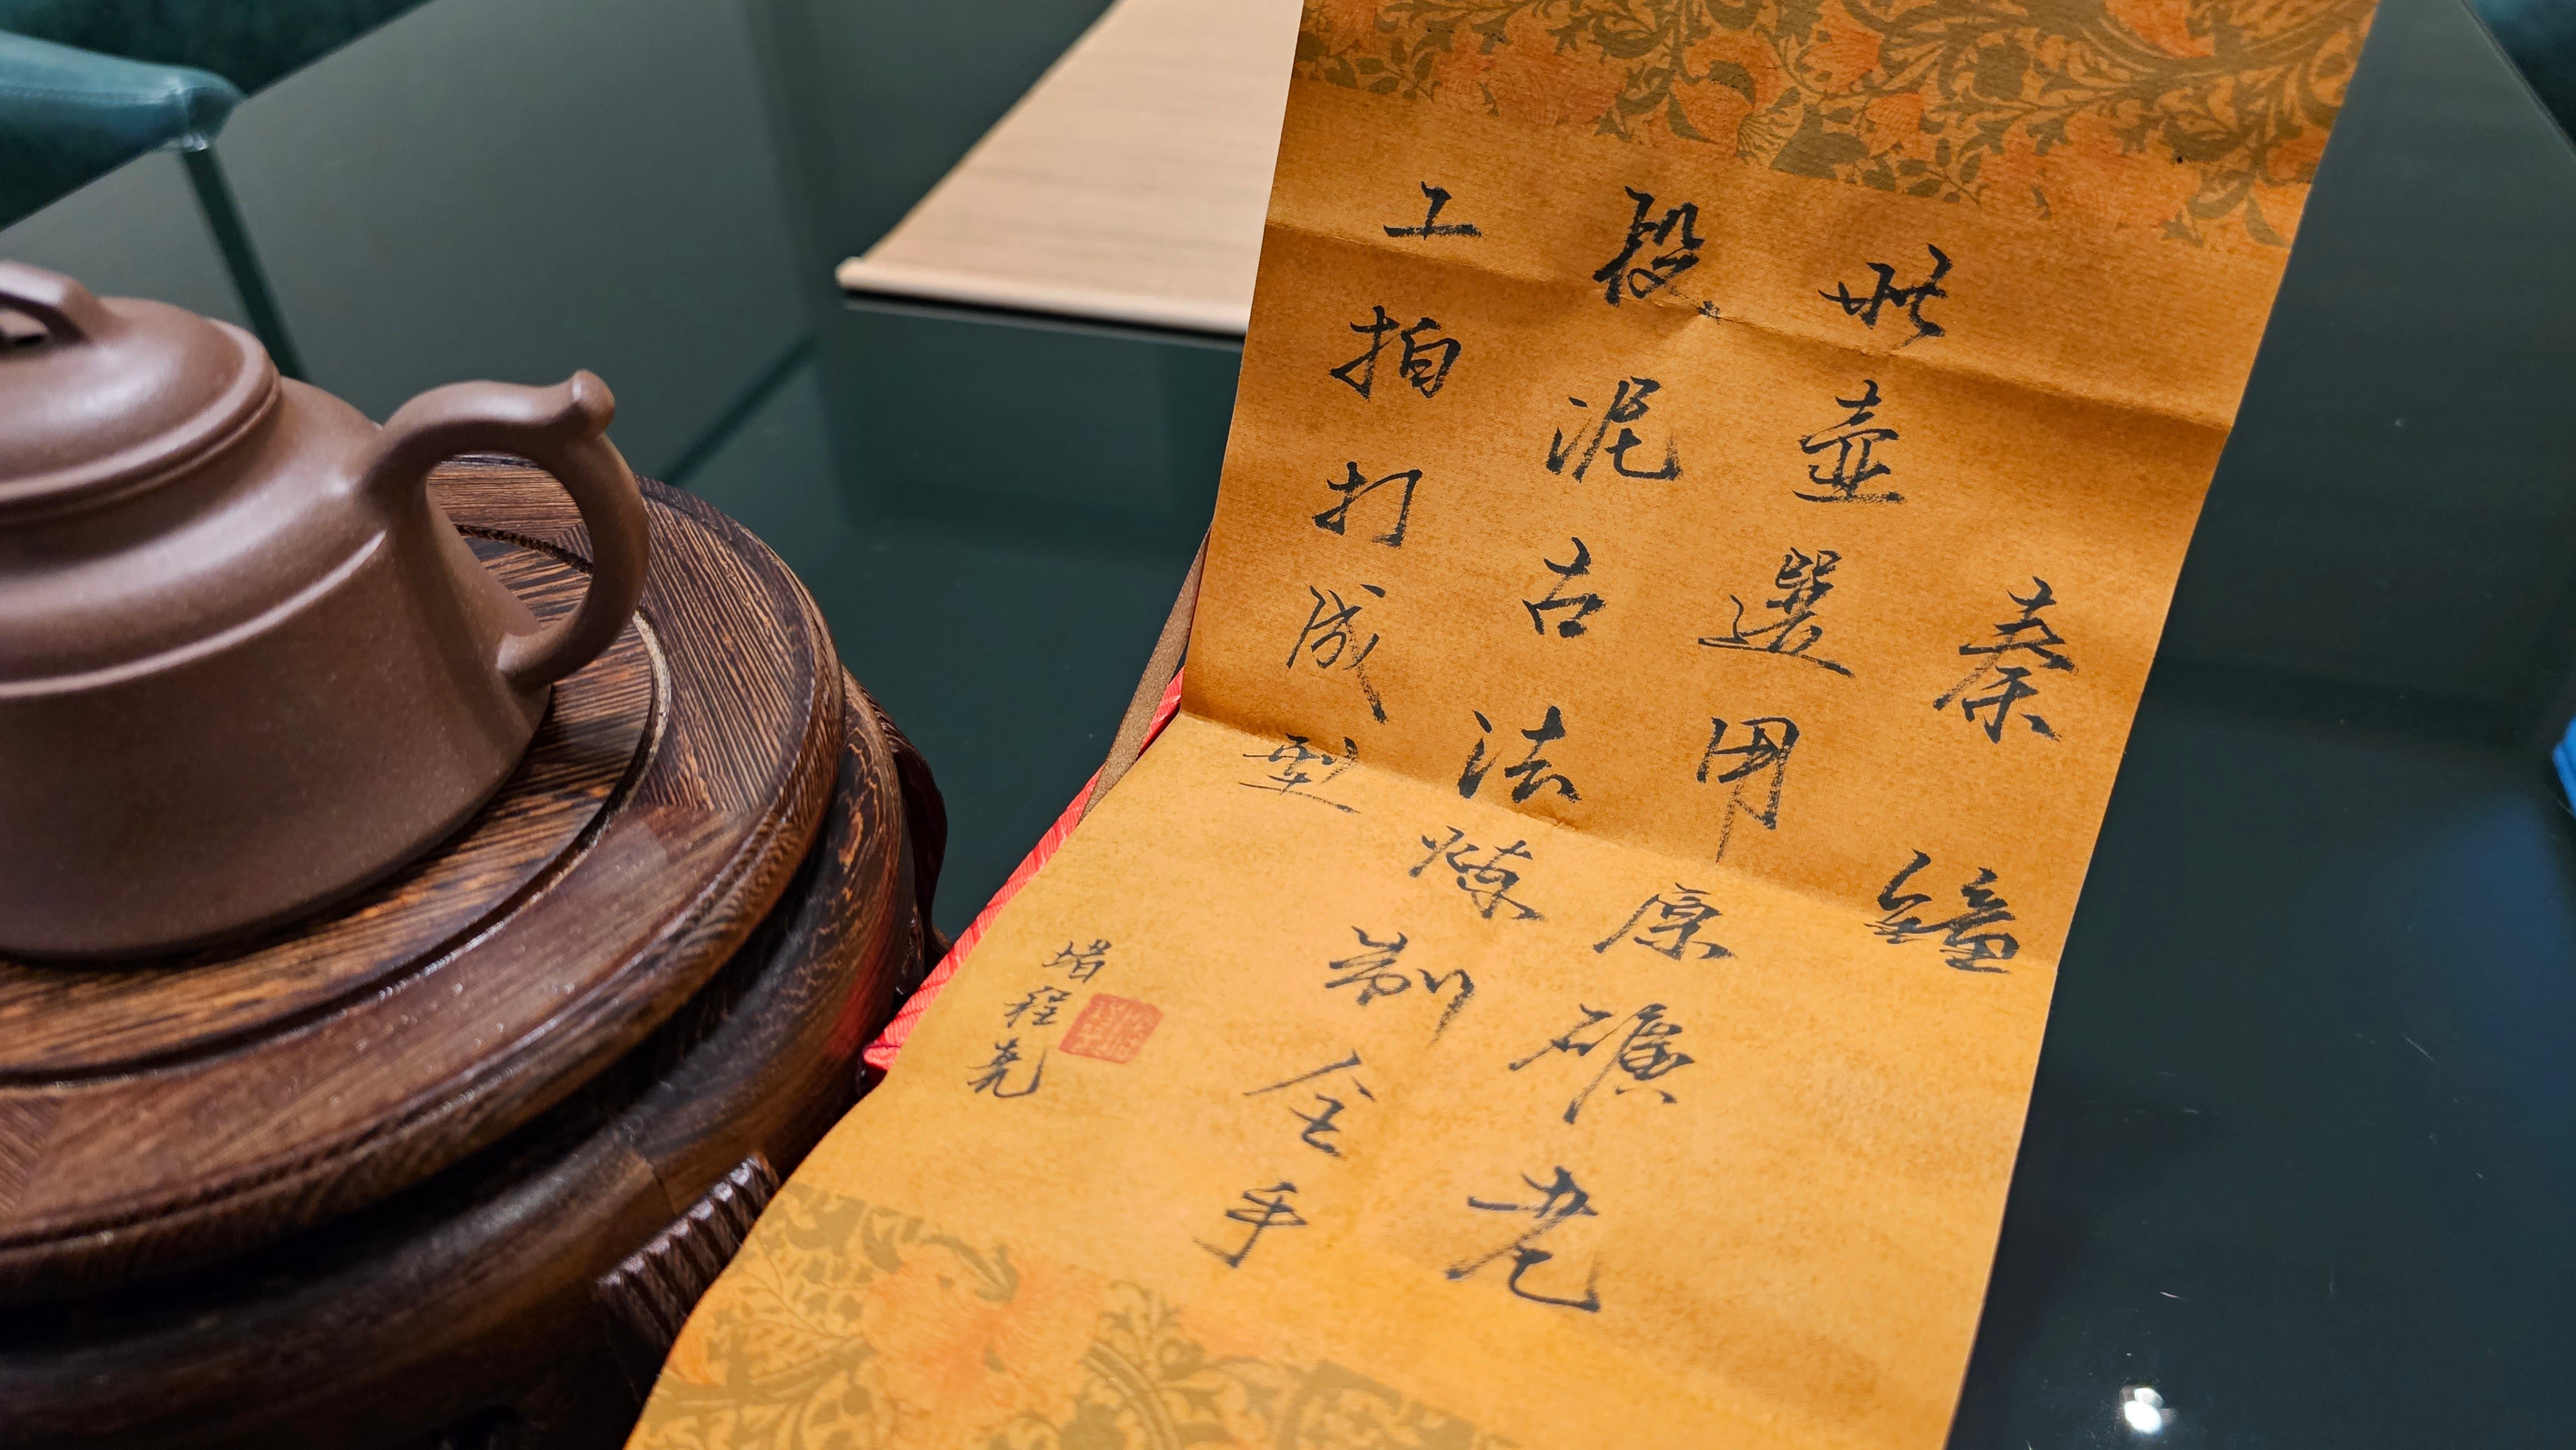 秦鐘
此壺選用原礦老
段泥古法煉制全手
工拍打成型
堵程堯